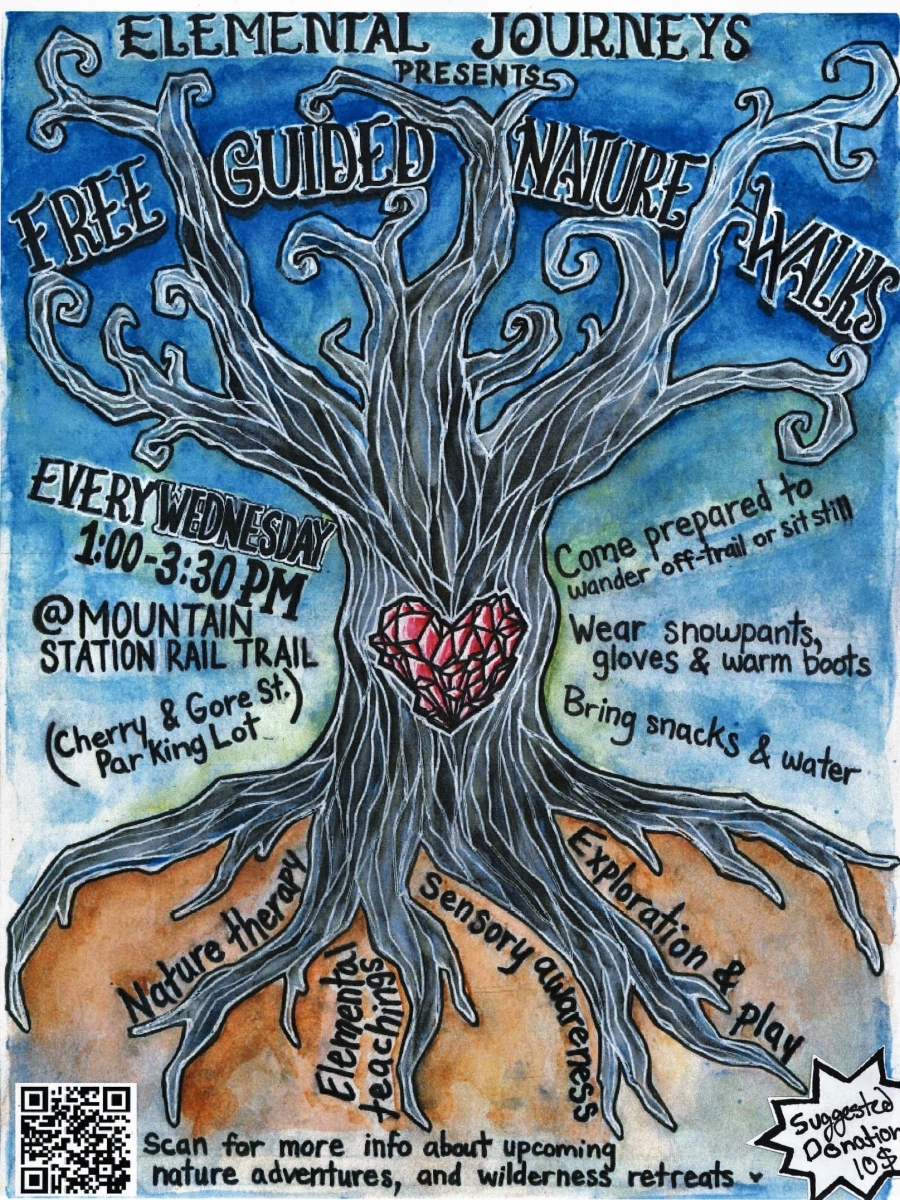 ELEMENTAL JOURNEYS
PRESENTS
FREE GUIDED NATURE WALKS
EVERY WEDNESDAY
1:00-3:30 PM
@ MOUNTAIN
STATION RAIL TRAIL
(Cherry & Gore St.)
Parking Lot
Come prepared to
wander off-trail or sit still
Wear snowpants,
gloves & warm boots
Bring snacks & water
Nature therapy
Elemental
teachings
Sensory awareness
Exploration & play
Scan for more info about upcoming
nature adventures, and wilderness retreats
Suggested
Donation
10$